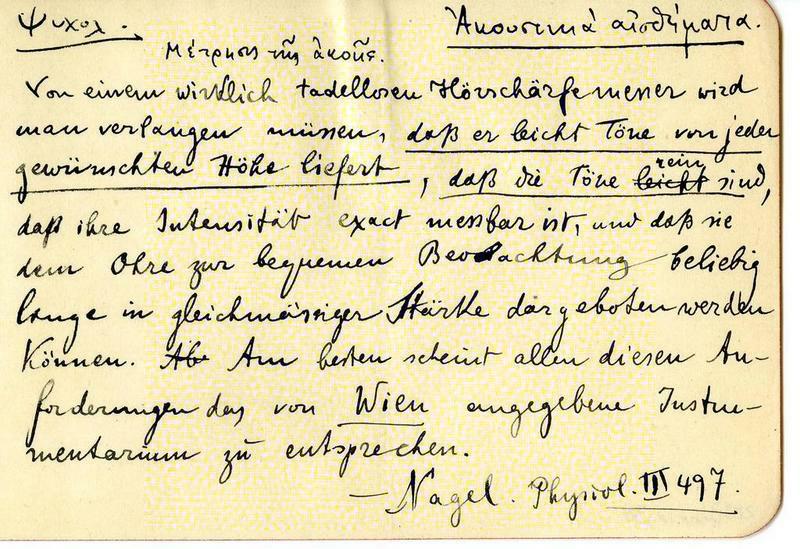 Ψυχολ. Ἀκουστικὰ αἰσθήματα.
Μέτρησις τῆς ἀκοῆς.
Von einem wirklich tadellosen Hörschärfemesser wird
man verlangen müssen, daß er leicht Töne von jeder
gewünschten Höhe liefert, daß die Töne leicht rein sind,
daß ihre Intensität exact messbar ist, und daß sie
dem Ohre zur bequemen Beobachtung beliebig
lange in gleichmässiger Stärke dargeboten werden
können. Ab Am besten scheint allen diesen An-
forderungen das von Wien angegebene Instru-
mentarium zu entsprechen.
— Nagel. Physiol. III 497.